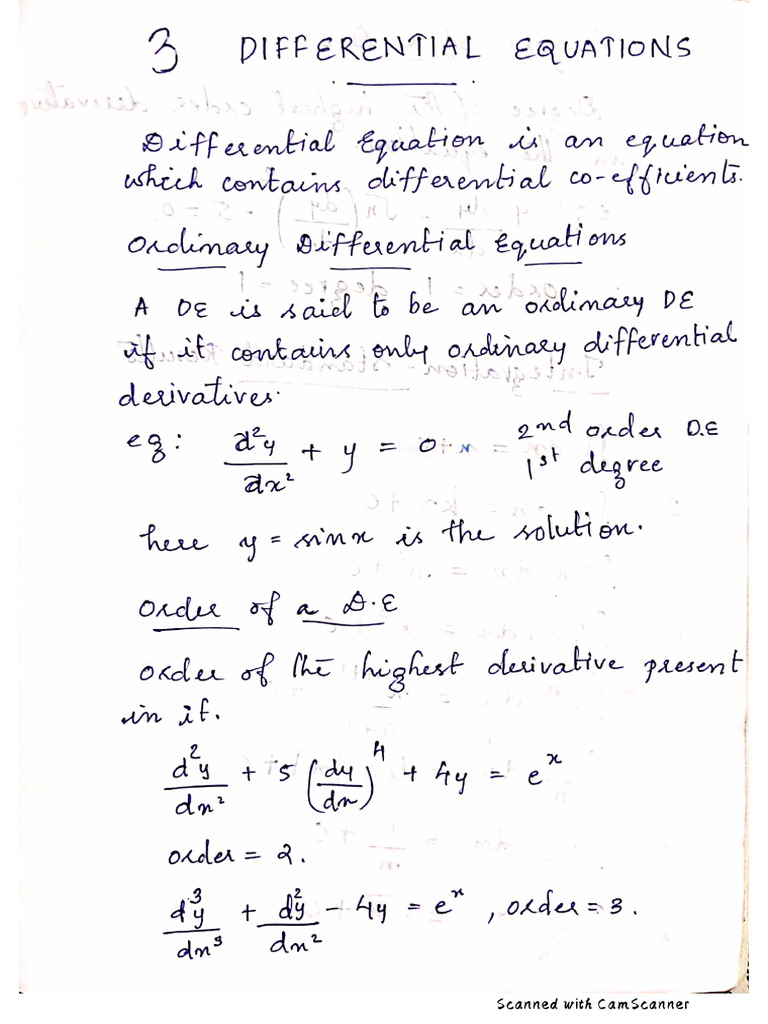 3 DIFFERENTIAL EQUATIONS
Differential Equation is an equation
which contains differential co-efficients.
Ordinary Differential Equations
A DE is said to be an ordinary DE
if it contains only ordinary differential
derivatives.
eg: d²y/dx² + y = 0 2nd order D.E
1st degree
here y = sinx is the solution.
Order of a D.E
Order of the highest derivative present
in it.
d²y/dx² + 5 (dy/dx)⁴ + 4y = eˣ
order = 2.
d³y/dx³ + d²y/dx² - 4y = eˣ, order = 3.
Scanned with CamScanner